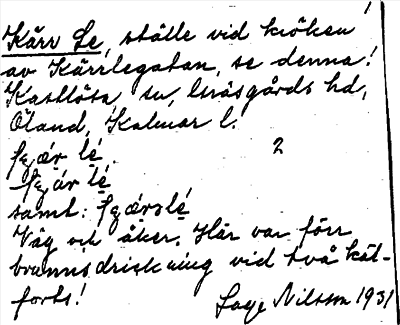 Kärr Le, ställe vid kröken
av Kärrlegatan, se denna!
Kastlösa sn, Gräsgårds hd,
Öland, Kalmar l.
2
samt:
Väg och åker. Här var förr
brunnsdrickning vid två käl-
forts!
Lage Nilsson 1931